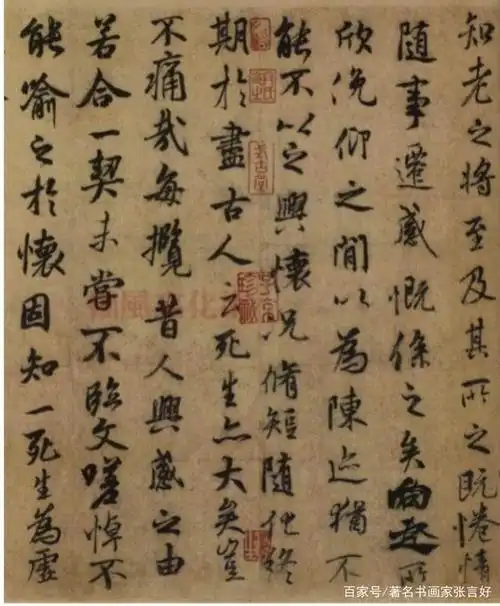 知老之将至及其所之既惓情
随事遷感慨係之矣向之所
欣俛仰之閒以為陳迹猶不
能不以之興懷況脩短隨化終
期於盡古人云死生亦大矣豈
不痛哉每攬昔人興感之由
若合一契未嘗不臨文嗟悼不
能喻之於懷固知一死生為虛
百家号/著名书画家张言好